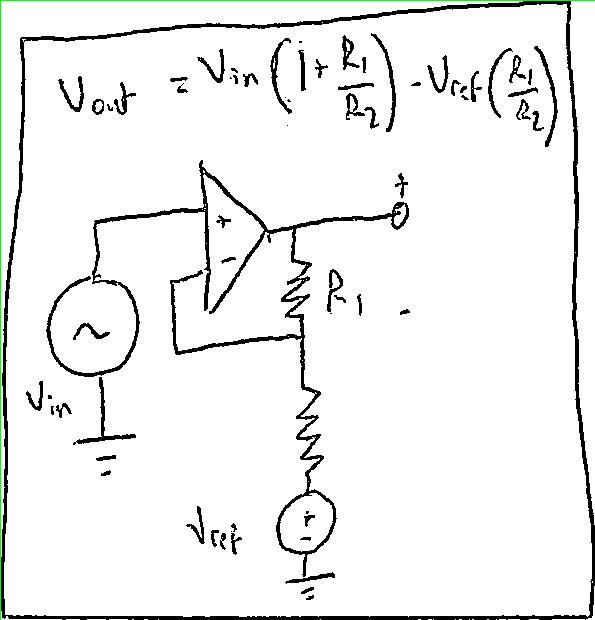 Vout = Vin (1 + R1/R2) - Vref (R1/R2)
+
+
-
R1
~
Vin
Vref
+
-